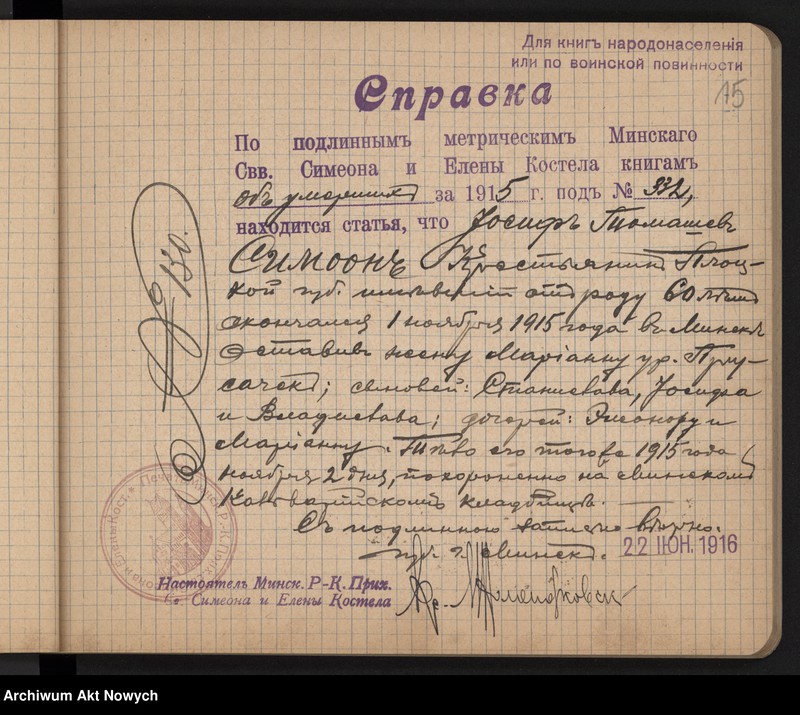 Для книгъ народонаселенія
или по воинской повинности
15
Справка
По подлиннымъ метрическимъ Минскаго
Свв. Симеона и Елены Костела книгамъ
объ умершихъ за 1915 г. подъ № 332,
находится статья, что Іосифъ Томашевъ
Симоонъ Крестьянинъ Плоц-
кой губ. имѣвшій отъ роду 60 лѣтъ
скончался 1 ноября 1915 года въ Минскѣ
оставивъ жену Маріанну ур. Пру-
сачекъ; сыновей: Станислава, Іосифа
и Владислава; дочерей: Элеонору и
Маріанну. Тѣло его того же 1915 года
ноября 2 дня, похоронено на Минскомъ
кладбищѣ.
Съ подлинною записью вѣрно.
г. Минскъ. 22 ІЮН. 1916
Настоятель Минск. Р-К. Прих.
Св. Симеона и Елены Костела
№ 130.
Archiwum Akt Nowych